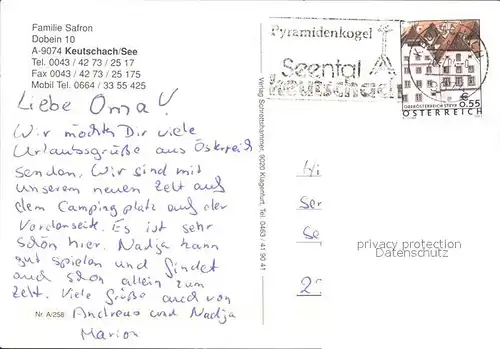 Familie Safron
Dobein 10
A-9074 Keutschach/See
Tel. 0043 / 42 73 / 25 17
Fax 0043 / 42 73 / 25 175
Mobil Tel. 0664 / 33 55 425
Liebe Oma!
Wir möchten Dir viele
Urlaubsgrüße aus Österreich
senden. Wir sind mit
unserem neuen Zelt auf
dem Campingplatz auf der
Vorderseite. Es ist sehr
schön hier. Nadja kann
gut spielen und findet
auch schon allein zum
Zelt. Viele Grüße auch von
Andreas und Nadja
Marion
Nr. A/258
Verlag Schretthammer, 9020 Klagenfurt, Tel. 0463 / 41 90 41
Pyramidenkogel
Seental
Keutschach
KEUTSCHACH
OBERÖSTERREICH·STEYR
€ 0.55
ÖSTERREICH
privacy protection
Datenschutz